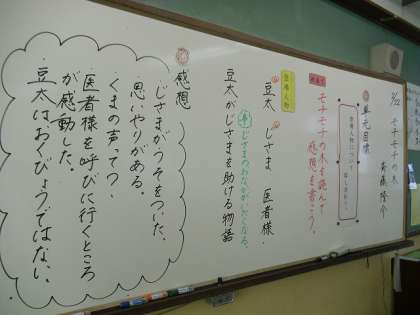 9/12 モチモチの木
斎藤隆介
単元目標
登場人物について
話し合おう。
モチモチの木を読んで
感想を書こう。
登場人物
豆太 じさま 医者様
じさまのおなかがいたくなる。
豆太がじさまを助ける物語
感想
じさまがうそをついた。
思いやりがある。
くまの声って?
医者様を呼びに行くところ
が感動した。
豆太はおくびょうではない。